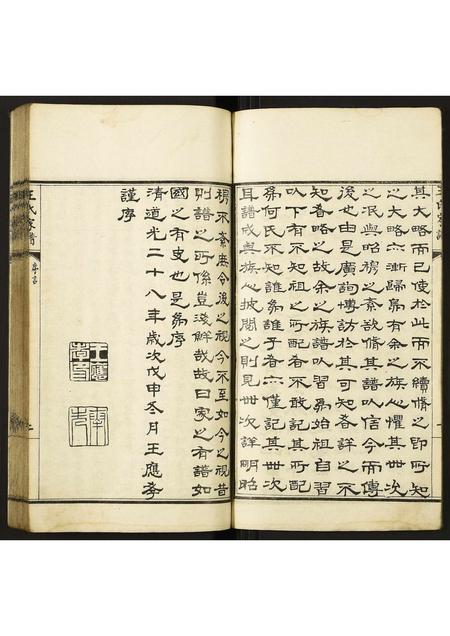 其大略而已使於此而不續脩之即所知
之大略亦漸歸烏有余之族心懼其世次
之泯與昭穆之紊欲脩其譜以信今而傳
後也由是廣詢博訪於其可知者詳之不
知者略之故余之族譜以習為始祖自習
以下有不知祖之所配者不敢記其所配
為何氏不知誰為誰子者亦僅記其所配
且譜成與族人披閱之則見世次詳明昭
穆不紊庶令後之視今不至如今之視昔
則譜之所係豈淺鮮哉故曰家之有譜如
國之有史也是為序
清道光二十八年歲次戊申冬月王應孝
謹序
王氏家譜
序言
二
王應
孝印